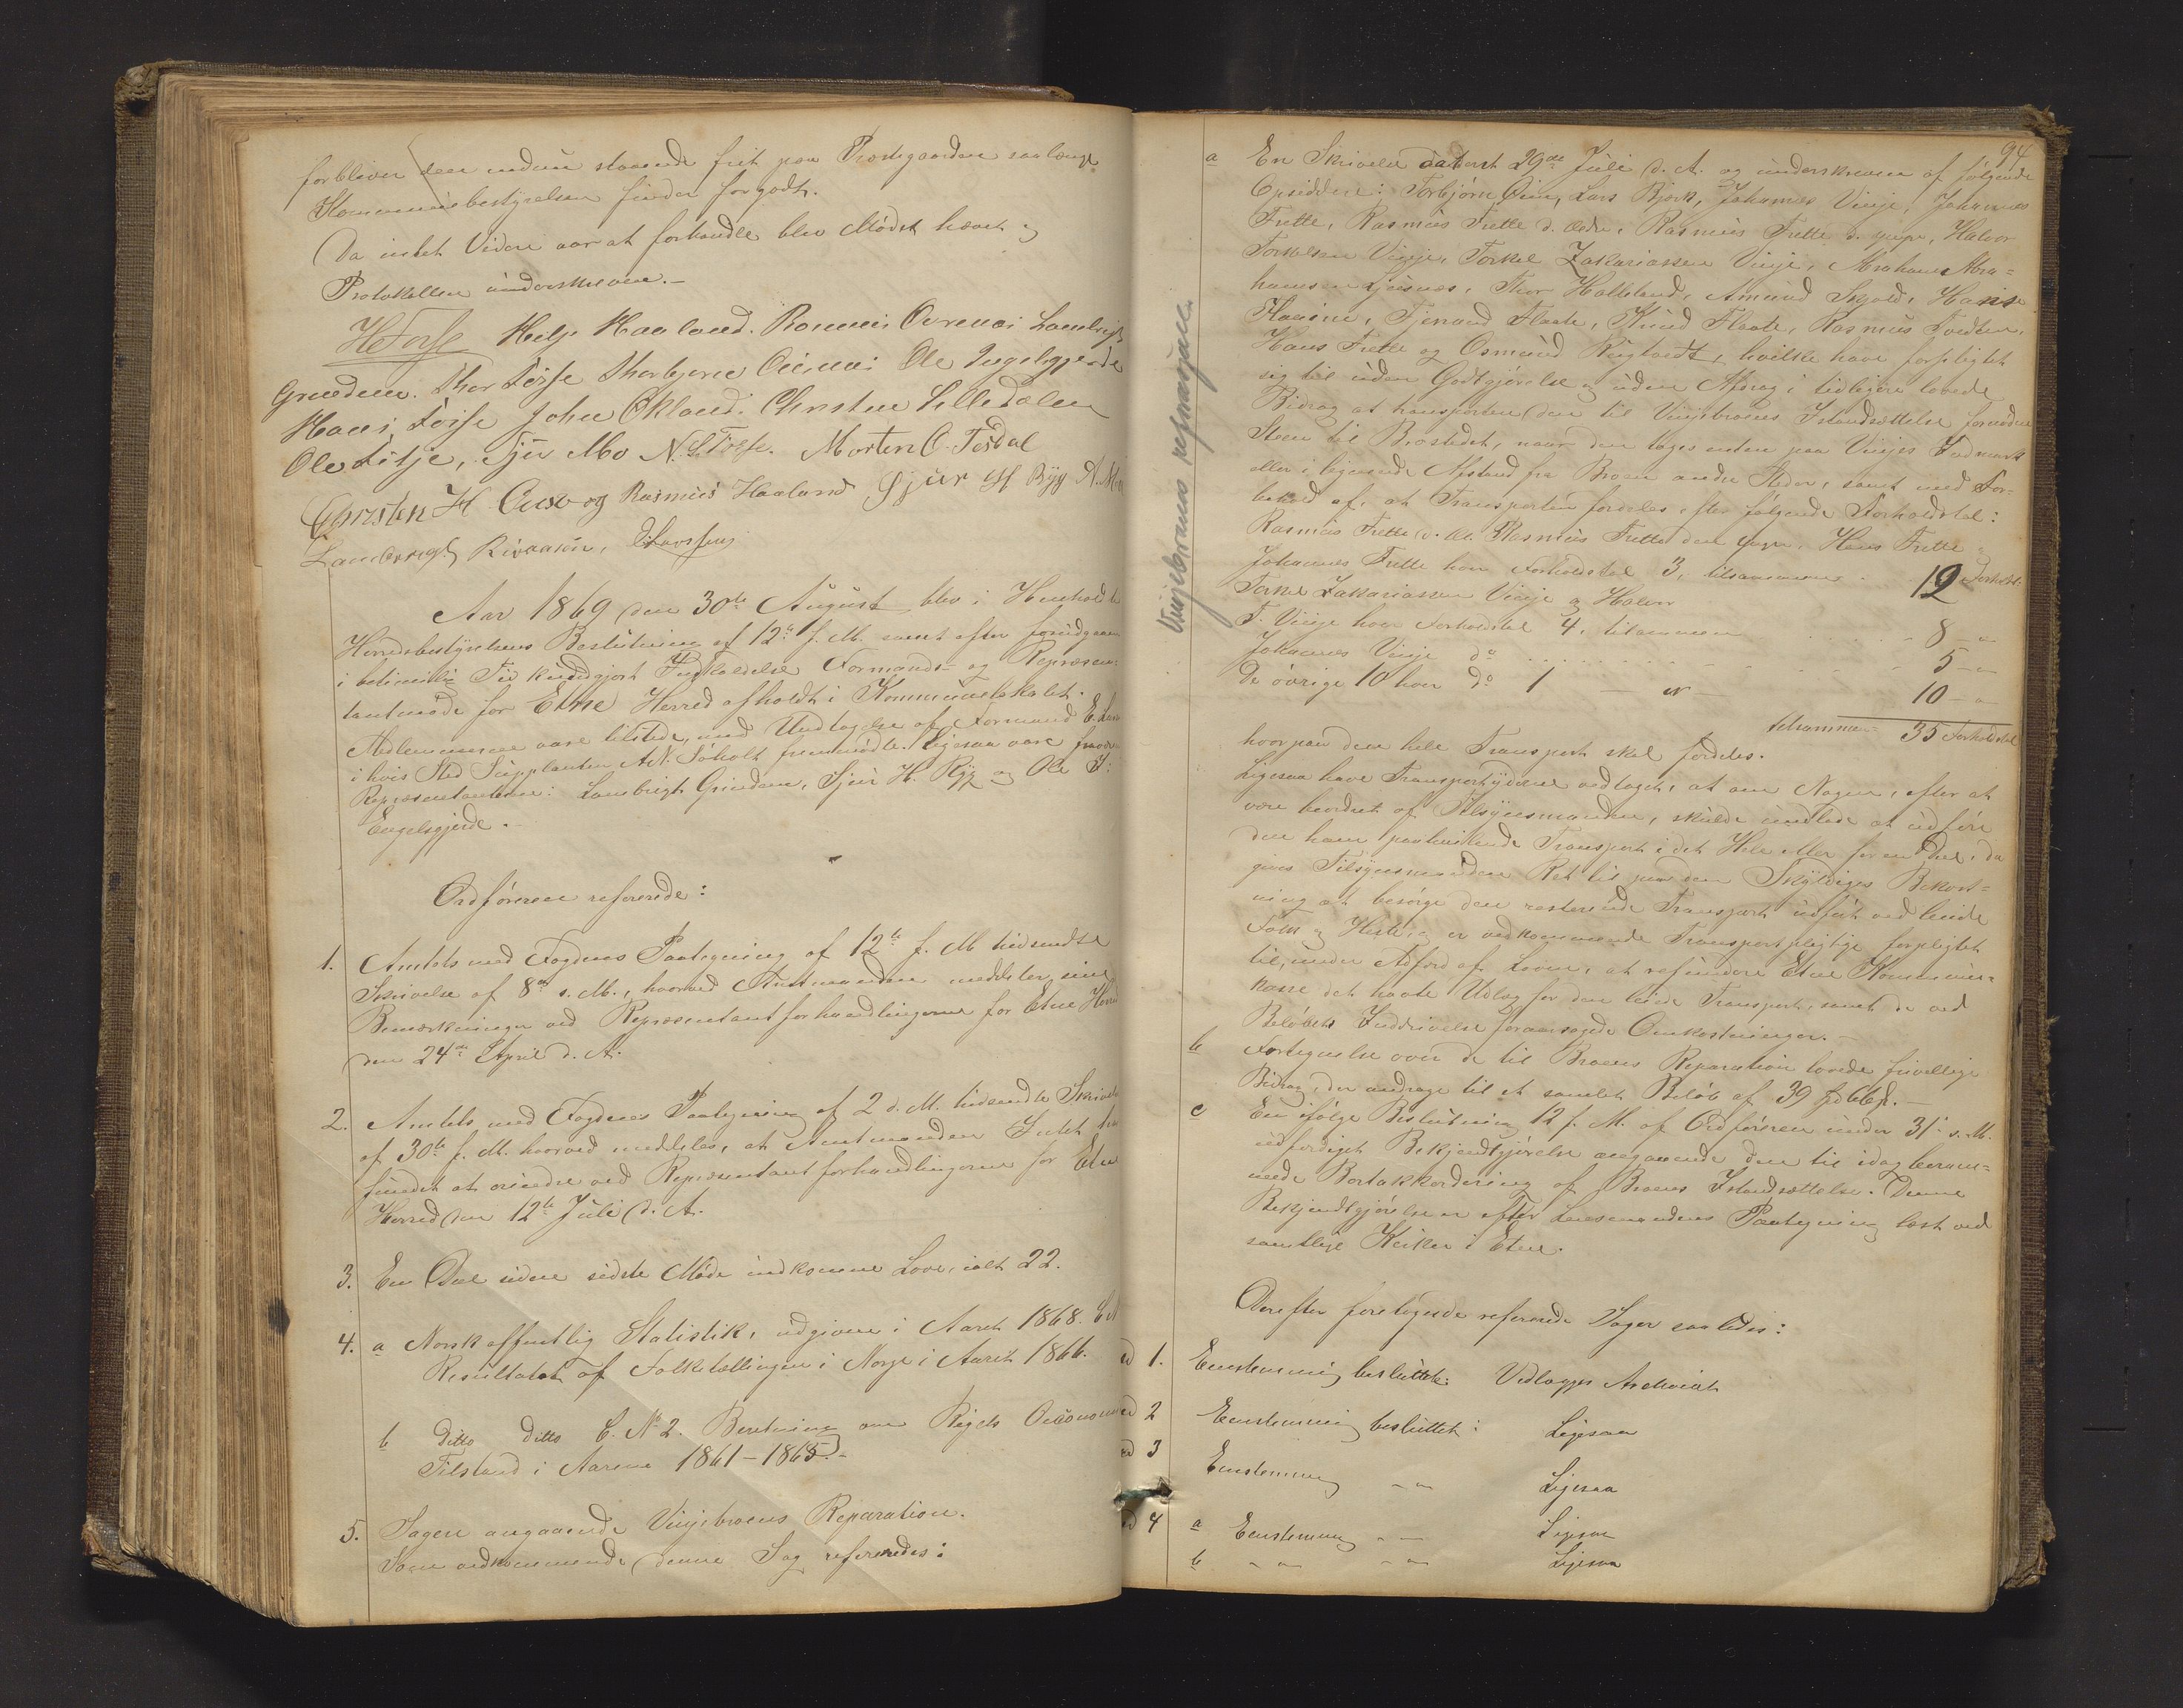 forbliver den endnu staaende frit paa Præstegaarden saalænge
Kommunebestyrelsen finder forgodt.
Da intet Videre var at forhandle blev Mødet hævet og
Protokollen underskreven.-
HFosse Helje Haaland. Rasmus Lambrigt
Grindem. Thor Fosse Thorbjørn Ole Ingelsgjerde
Hans Fosse John Økland. Christen Silledalen
Ole Litje, Sjur Mo N. S. Fosse. Morten O. Tesdal
Christen H og Rasmus Haaland Sjur H Ryg
Lambregt
Aar 1869 den 30te August blev i Henhold til
Herredsbestyrelsens Beslutning af 12te f. M. samt efter forudgaaen
i betimelig Tid kundgjort Indkaldelse Formands- og Repræsen-
tantmøde for Etne Herred afholdt i Kommunelokalet.
Medlemmerne vare tilstede, med Undtagelse af Formand E.
i hvis Sted Supplanten A. N. Søholt fremmødte. Ligesaa vare
Repræsentanterne: Lambrigt Grindem, Sjur H. Ryg og Ole
Engelsgjerde.-
Ordføreren refererede:
1. Amtets med Fogdens Paategning af 12te f. M. tilsendte
Skrivelse af 8de s. M., hvorved Amtmanden meddeler sine
Bemærkninger ved Repræsentantforhandlingerne for Etne Herred
den 24de April d. A.
2. Amtets med Fogdens Paategning af 2 d. M. tilsendte Skrivelse
af 30te f. M. hvorved meddeles, at Amtmanden Intet har
fundet at erindre ved Repræsentantforhandlingerne for Etne
Herred den 12te Juli d. A.
3. En Deel siden sidste Møde indkomne Love, ialt 22.
4. a Norsk offentlig Statistik, udgiven i Aaret 1868.
Resultatet af Folketællingen i Norge i Aaret 1866.
b ditto ditto C. No 2. Beretning om Rigets Oeconom
Tilstand i Aarene 1861-1865.-
5. Sagen angaaende Vinjebroens Reparation.
Som vedkommende denne Sag refereredes:
94
Vinjebroens reparasjon
a En Skrivelse dateret 29de Juli d. A. og underskreven af følgende
Opsiddere: Torbjørn Øien, Lars Bjørk, Johannes Vinje, Johannes
Frette, Rasmus Frette d. ældre, Rasmus Frette d. yngre, Halvor
Torkelsen Vinje, Torkel Zakariassen Vinje, Abraham Abra-
hamsen Thor Halleland, Amund Skjold, Hans
Flaaten, Tjerand Flaate, Knud Flaate, Rasmus Tvedten,
Hans Frette og Osmund hvilke have forpligtet
sig til uden Godtgjørelse og uden Afdrag i tidligere lovede
Bidrag at transportere den til Vinjebroens Istandsættelse fornødne
Steen til Brostedet, naar den tages enten paa Vinjes Indmark
eller i lignende Afstand fra Broen andre Steder, samt med For-
behold af, at Transporten fordeles efter følgende Forholdstal:
Rasmus Frette d. æ. Rasmus Frette den yngre, Hans Frette og
Johannes Frette hver Forholdstal 3, tilsammen . 12 Forholdst.
Torkel Zakariassen Vinje og Halvor
T. Vinje hver Forholdstal 4, tilsammen . . . . . . - 8 - "
Johannes Vinje do . . . . . . . - - - - - 5 - "
De øvrige 10 hver do 1 - " - 10 - "
tilsammen 35 Forholdstal
hvorpaa den hele Transport skal fordeles.
Ligesaa have Transportyderne vedtaget, at om Nogen, efter at
være beordret af Tilsynsmanden, skulde undlade at udføre
den ham paahvilende Transport i det Hele eller for en Deel, da
gives Tilsynsmanden Ret til paa den Skyldiges Bekost-
ning at besørge den resterende Transport udført ved leiede
Folk og Heste, og er vedkommende Transportpligtige forpligtet
til, under Adfærd af Loven, at refundere Etne Kommune-
kasse det havte Udlæg for den leiede Transport, samt de ved
Beløbets Inddrivelse foraarsagede Omkostninger.-
b Fortegnelse over de til Broens Reparation lovede frivillige
Bidrag, der andrage til et samlet Beløb af 39 Spd 66 s.-
c En ifølge Beslutning 12 f. M. af Ordføreren under 31te s. M.
udfærdiget Bekjendtgjørelse angaaende den til idag beram-
mede Bortakkordering af Broens Istandsættelse. Denne
Bekjendtgjørelse er efter Lensmandens Paategning læst ved
samtlige Kirker i Etne.
Derefter foretoges de refererede Sager saaledes:
ad 1. Eenstemmig besluttet: Vedlægges Archivet
ad 2 Eenstemmig besluttet: Ligesaa
ad 3 Eenstemmig - " - Ligesaa
ad 4 a Eenstemmig - " - Ligesaa
b - " - - " - Ligesaa